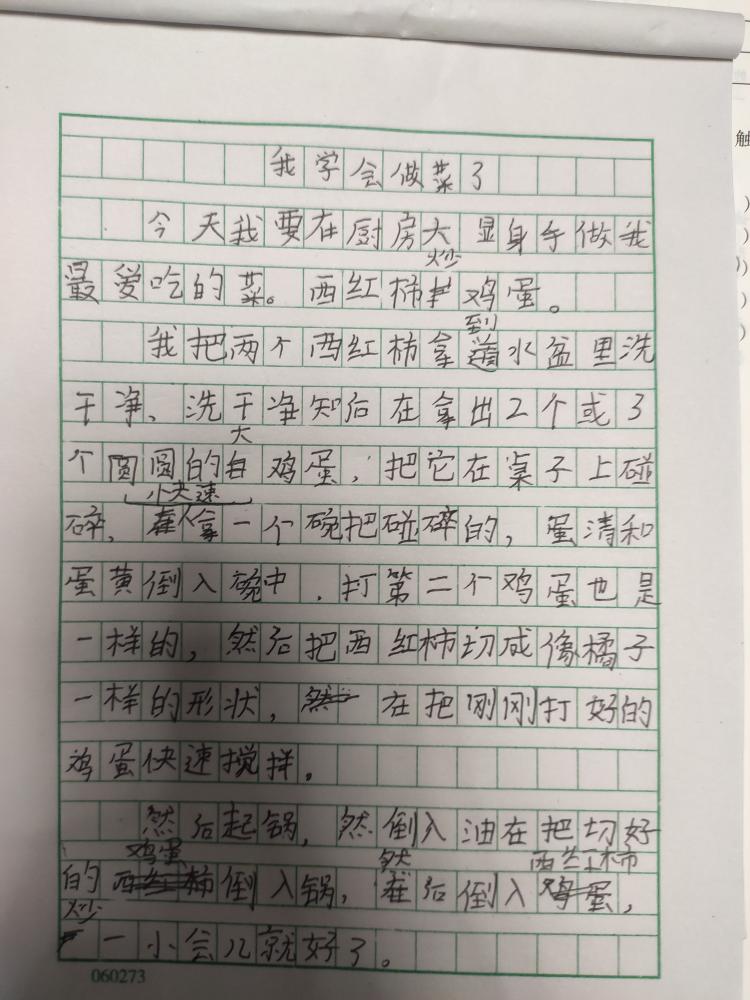 我学会做菜了
今天我要在厨房大显身手做我
炒
最爱吃的菜。西红柿鸡蛋。
到
我把两个西红柿拿水盆里洗
干净、洗干净知后在拿出2个或3
大
个圆圆的鸡蛋，把它在桌子上碰
小快速
碎、拿一个碗把碰碎的，蛋清和
蛋黄倒入碗中．打第二个鸡蛋也是
一样的，然后把西红柿切成像橘子
一样的形状，在把刚刚打好的
鸡蛋快速搅拌。
然后起锅，然倒入油在把切好
鸡蛋 然 西红柿
的倒入锅，后倒入，
炒
一小会儿就好了。
060273
触